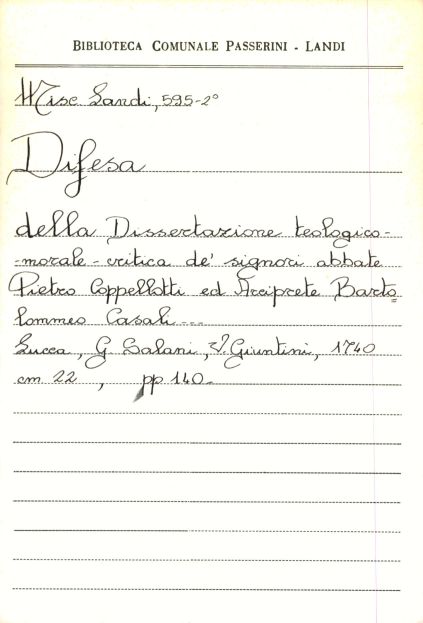 BIBLIOTECA COMUNALE PASSERINI - LANDI
Misc. Landi, 595-2°
Difesa
della Dissertazione teologico-
-morale-critica de' signori abbate
Pietro Coppellotti ed Arciprete Barto=
lommeo Casali...
Lucca, G. Salani, V. Giuntini, 1740
cm 22, pp 140-